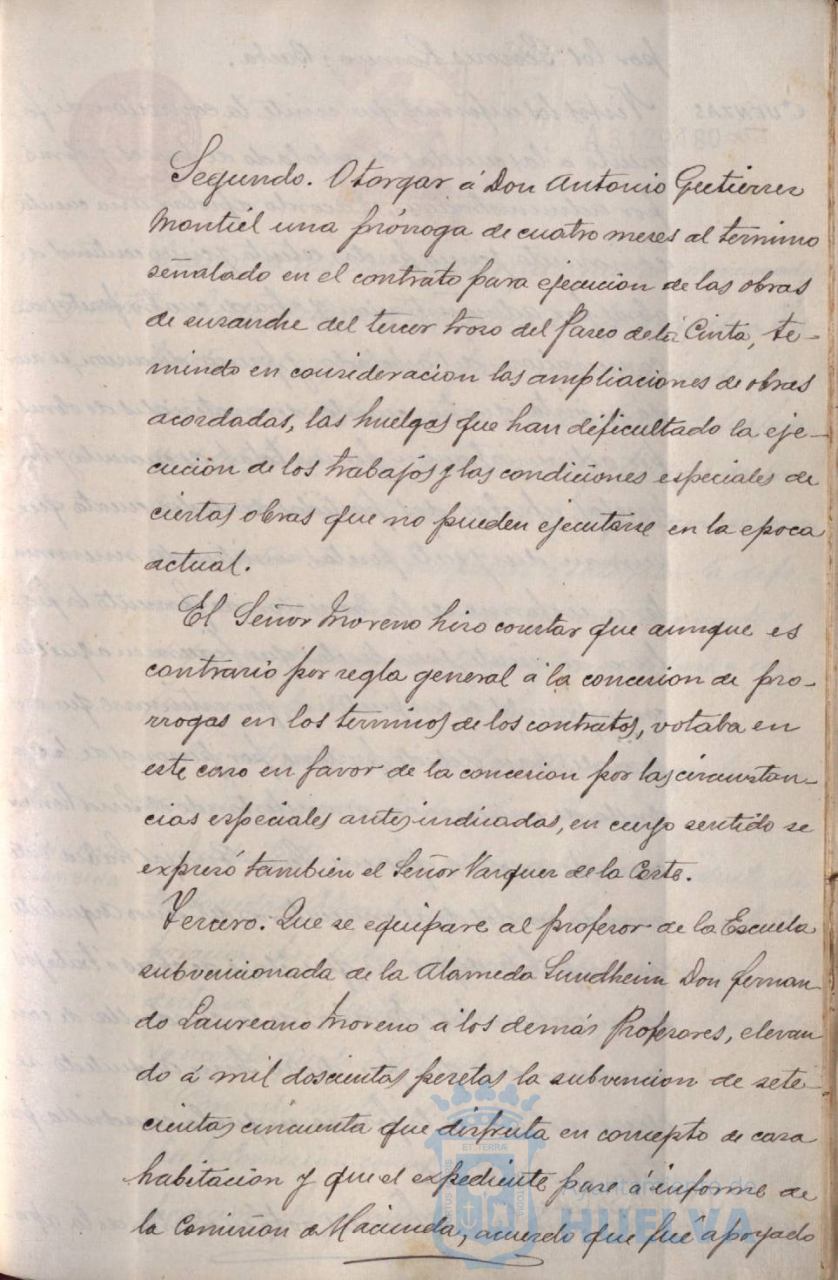 Segundo. Otorgar á Don Antonio Gutierrez
Montiel una prórroga de cuatro meses al termino
señalado en el contrato para ejecucion de las obras
de ensanche del tercer trozo del Paseo de la Cinta, te-
niendo en consideracion las ampliaciones de obras
acordadas, las huelgas que han dificultado la eje-
cución de los trabajos y las condiciones especiales de
ciertas obras que no pueden ejecutarse en la epoca
actual.
El Señor Moreno hizo constar que aunque es
contrario por regla general á la concesion de pro-
rrogas en los terminos de los contratos, votaba en
este caso en favor de la concesion por las circunstan-
cias especiales antes indicadas, en cuyo sentido se
expresó tambien el Señor Vazquez de la Corte.
Tercero. Que se equipare al profesor de la Escuela
subvencionada de la Alameda Sundheim Don Fernan-
do Laureano Moreno á los demás Profesores, elevan-
do á mil doscientas pesetas la subvencion de sete-
cientas cincuenta que disfruta en concepto de casa
habitación y que el expediente pase á informe de
la Comision de Hacienda, acuerdo que fué apoyado
Ayuntamiento de
HUELVA